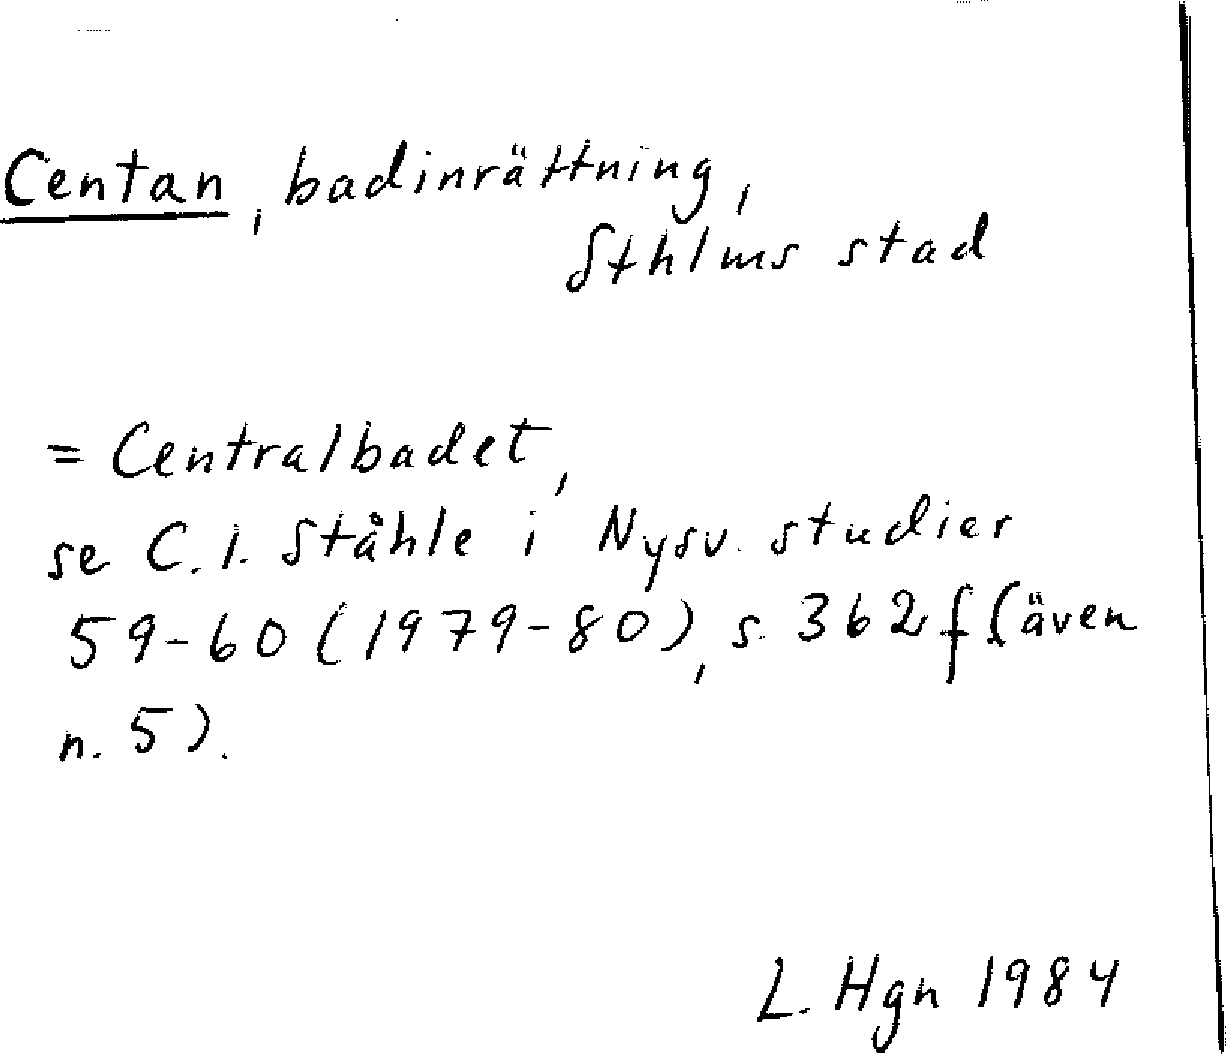 Centan, badinrättning,
Sthlms stad
= Centralbadet,
se C. I. Ståhle i Nysv. studier
59-60 (1979-80), s. 362 f (även
n. 5).
L. Hgn 1984